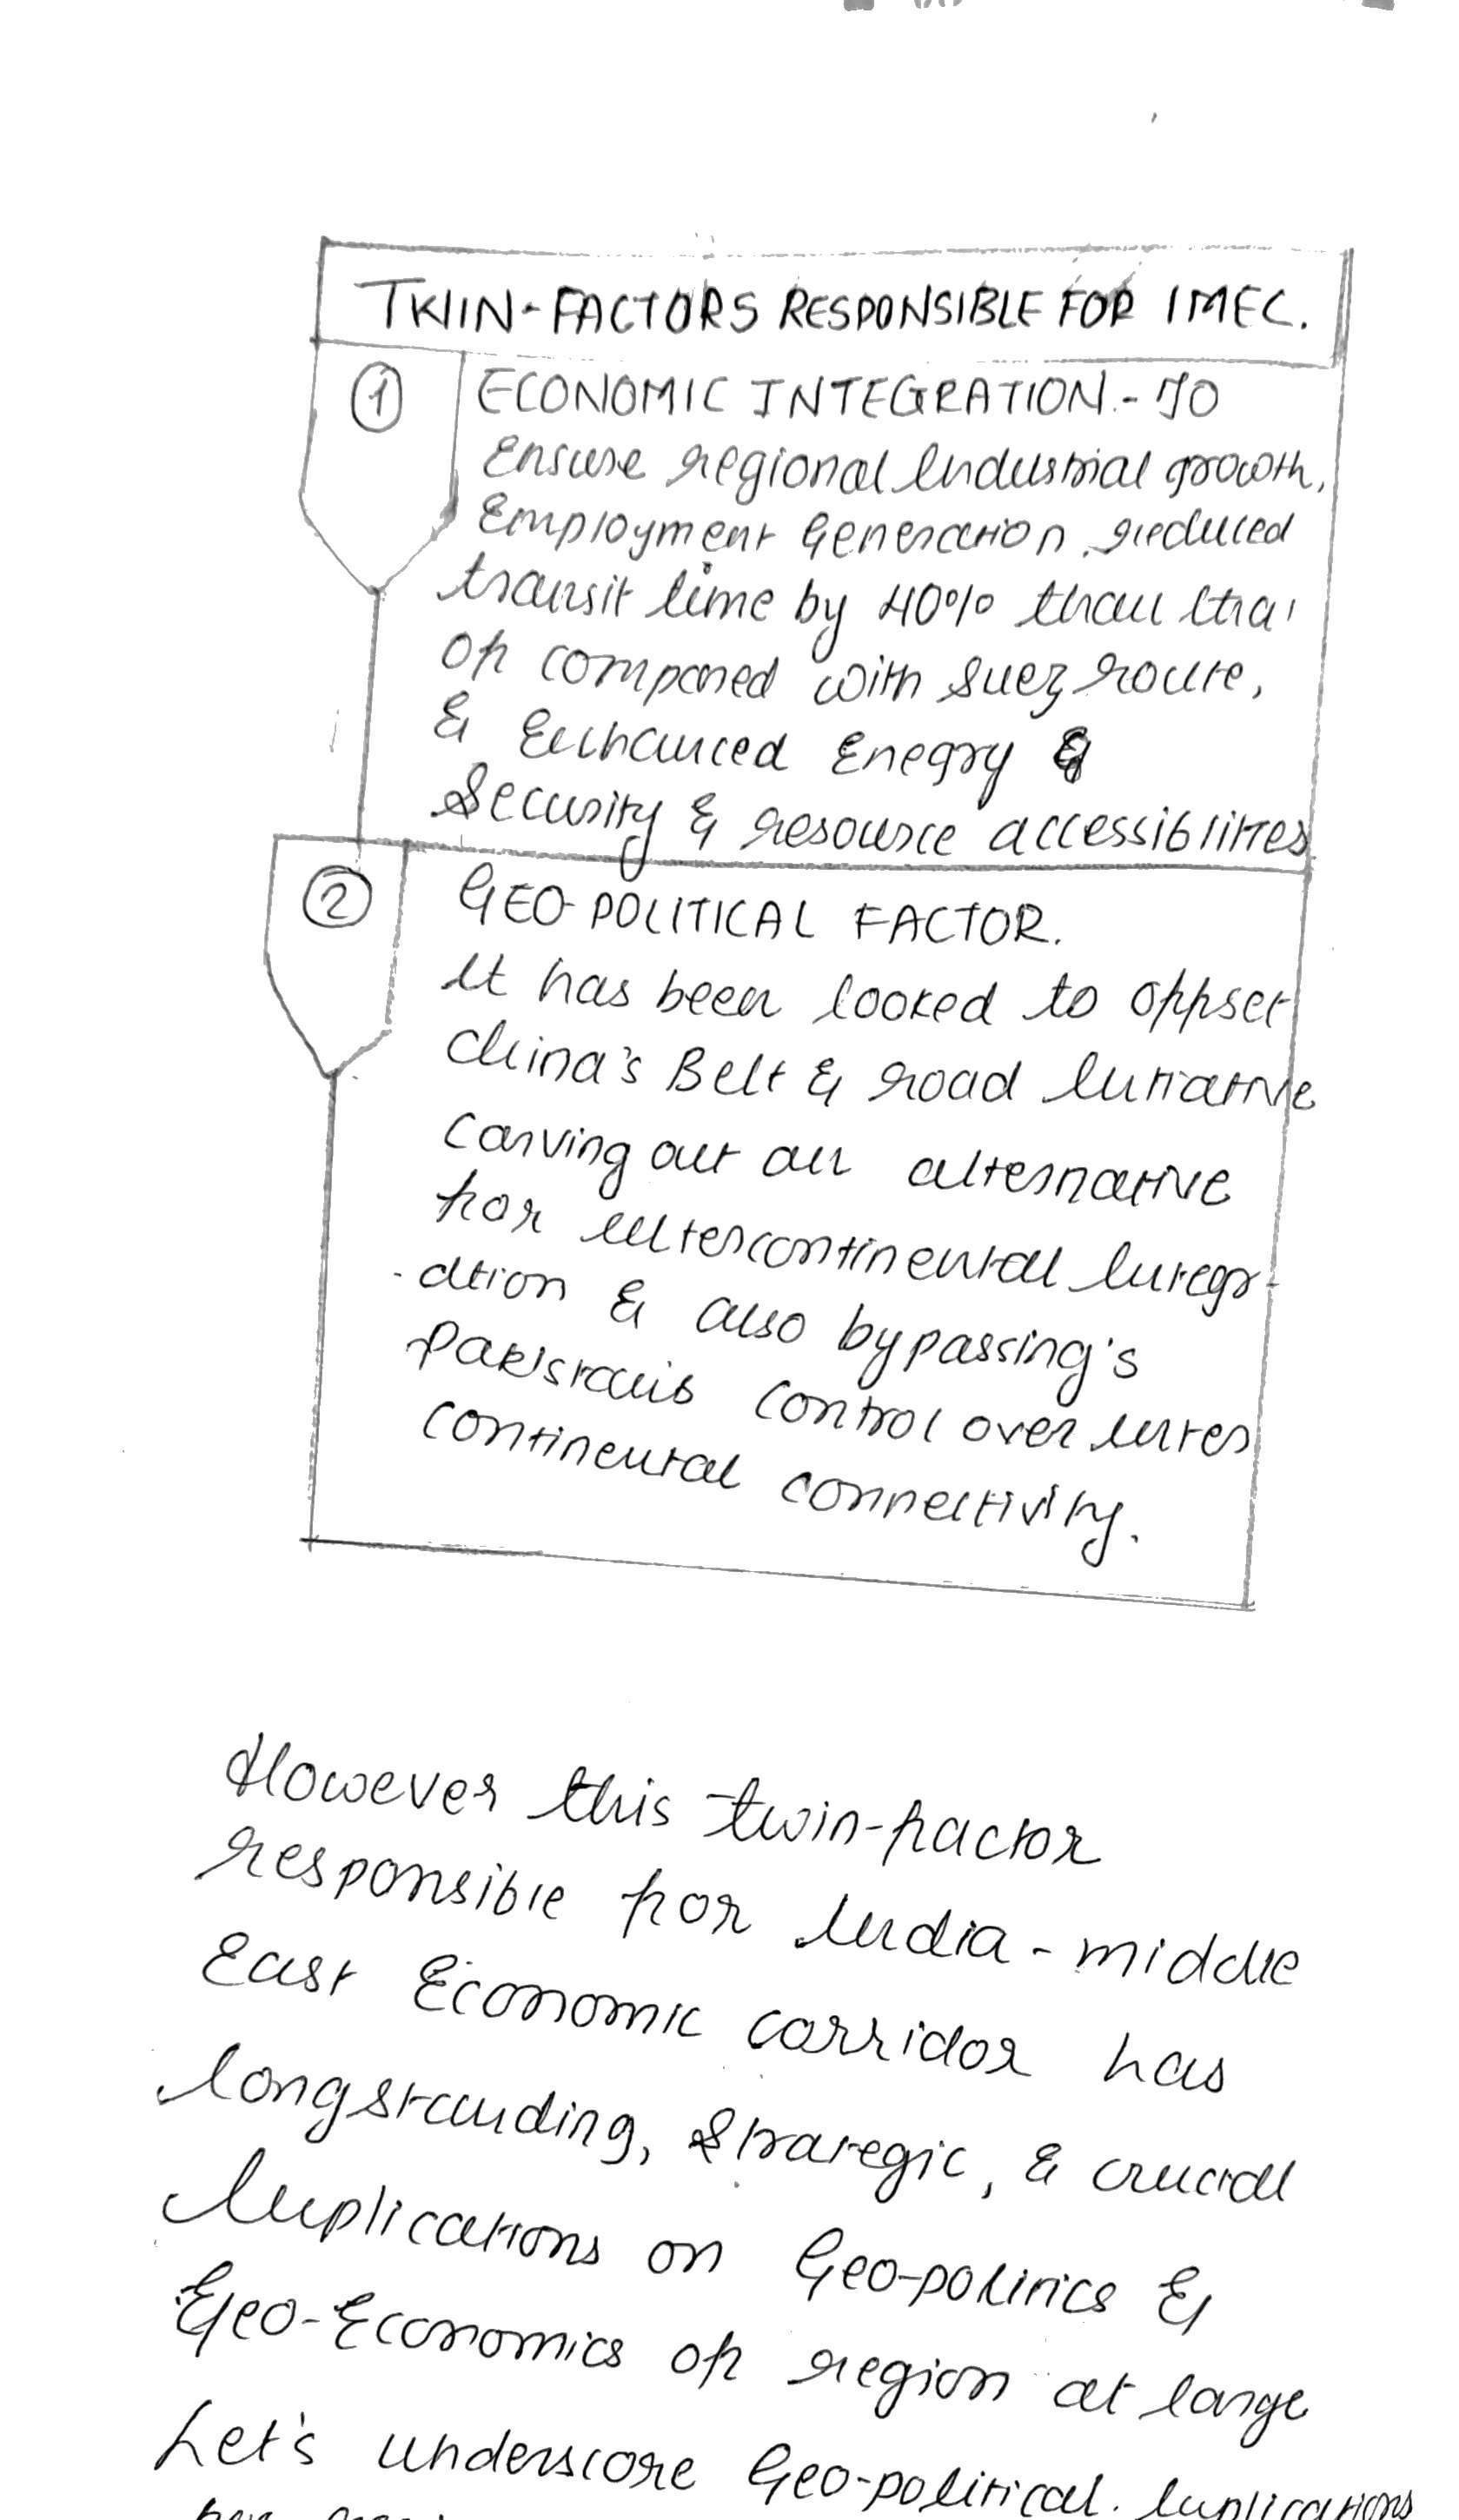 TWIN-FACTORS RESPONSIBLE FOR IMEC.
① ECONOMIC INTEGRATION.- TO
Ensure regional Industrial growth,
Employment Generation, reduced
transit time by 40% than that
of compared with Suez route,
& Enhanced Enegry &
Security & resource accessiblities
② GEO-POLITICAL FACTOR.
It has been looked to offset
China's Belt & road Initiative
Carving out an alternative
for intercontinental Integr-
-ation & also bypassing's
Pakistan's control over inter
continental connectivity.
However this twin-factor
responsible for India-middle
East Economic corridor has
longstanding, Strategic, & crucial
Implications on Geo-politics &
Geo-Economics of region at large
Let's underscore Geo-political. Implications
for